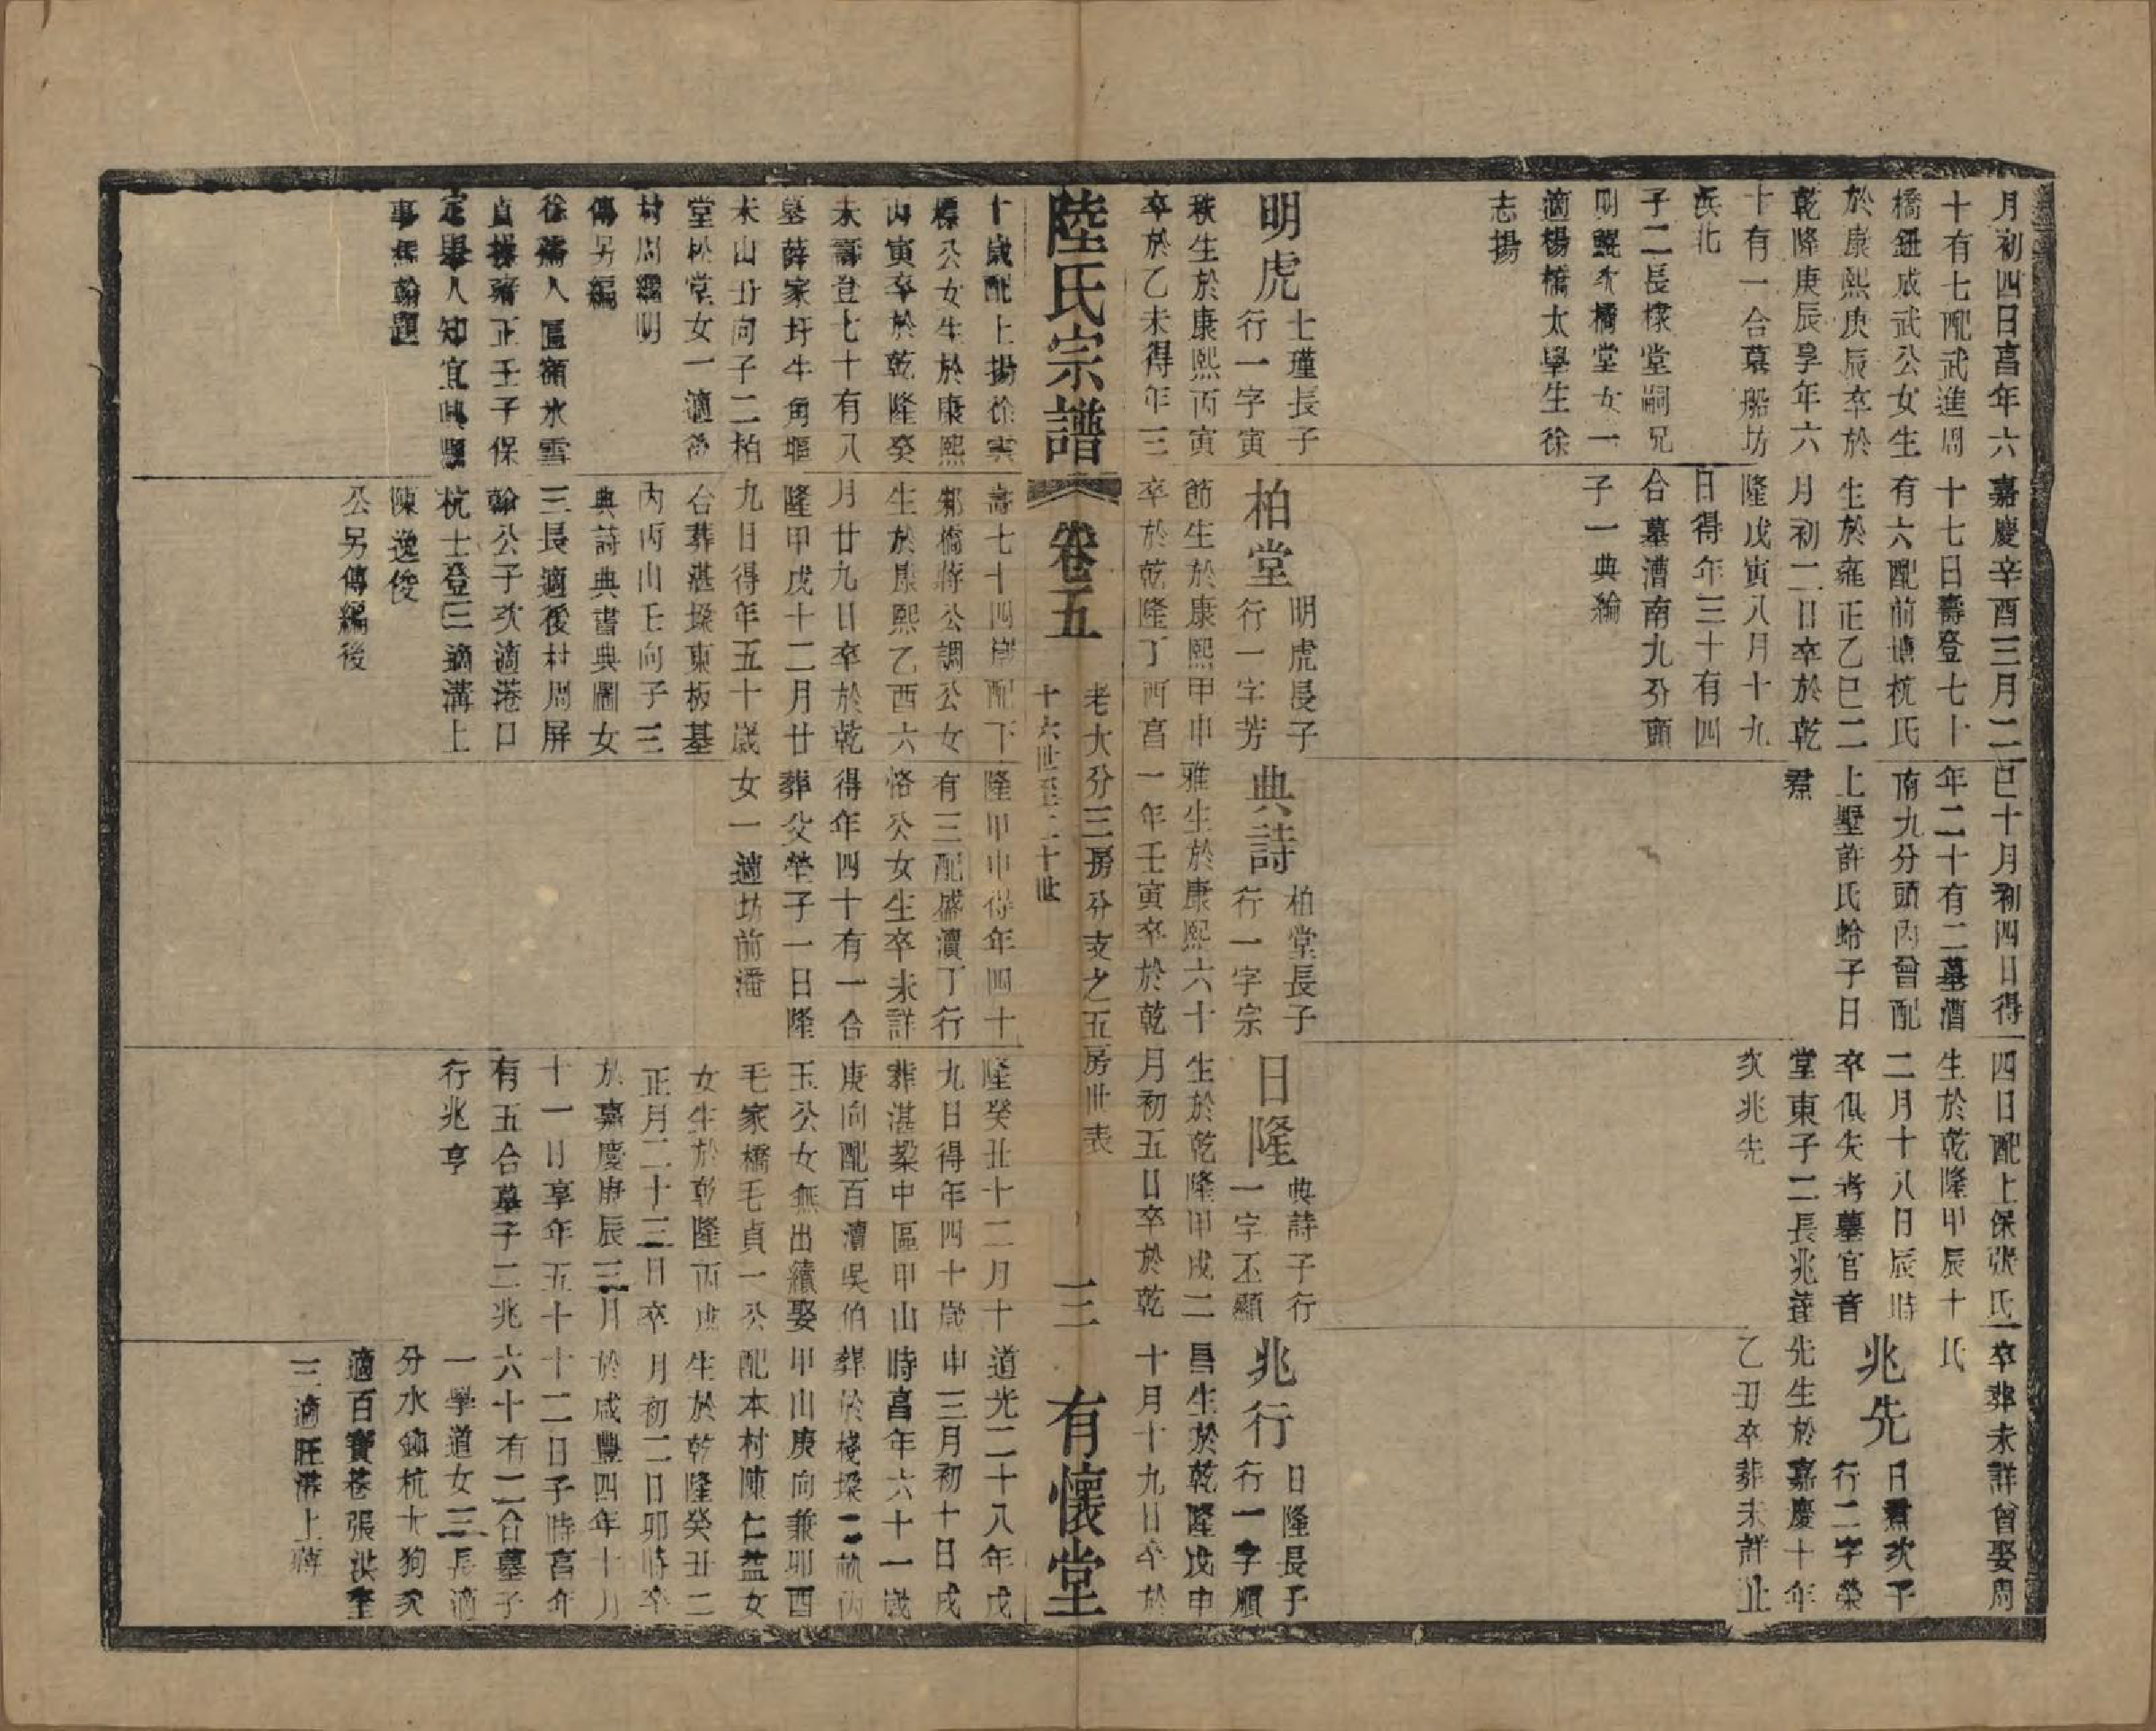 月初四日享年六
十有七配武進周
橋鈕咸武公女生
於康熙庚辰卒於
乾隆庚辰享年六
十有一合墓船坊
浜北
子二長棣堂嗣兄
明鯤次橘堂女一
適楊橋太學生徐
志揚
嘉慶辛酉三月二
十七日壽登七十
有六配前塘杭氏
生於雍正乙巳二
月初二日卒於乾
隆戊寅八月十九
日得年三十有四
合墓漕南九分頭
子一典綸
巳十月初四日得
年二十有二墓漕
南九分頭內曾配
上墅許氏蛉子日
焄
四日配上保張氏
生於乾隆甲辰十
二月十八日辰時
卒俱失考墓官音
堂東子二長兆蓬
次兆先
卒葬未詳曾娶周
氏
兆先 日焄次子
行二字榮
先生於嘉慶十年
乙丑卒葬未詳止
明虎 士瑾長子
行一字寅
秋生於康熙丙寅
卒於乙未得年三
柏堂 明虎長子
行一字芳
節生於康熙甲申
卒於乾隆丁酉昌
典詩 柏堂長子
行一字宗
雅生於康熙六十
一年壬寅卒於乾
日隆 典詩子行
一字丕顯
生於乾隆甲戌二
月初五日卒於乾
兆行 日隆長子
行一字順
昌生於乾隆戊申
十月十九日卒於
陸氏宗譜 卷五
老大分三房分支之五房世表
十六世至二十世
三 有懷堂
十歲配上揚徐雲
標公女生於康熙
丙寅卒於乾隆癸
未壽登七十有八
墓薛家圩牛角堰
未山丑向子二柏
堂松堂女一適後
村周繼明
傳另編
徐孺人匾額冰雪
貞操雍正壬子保
定舉人知宜興縣
事熊翰題
壽七十四歲配下
邾橋蔣公調公女
生於康熙乙酉六
月廿九日卒於乾
隆甲戌十二月廿
九日得年五十歲
合葬湛墚東板基
內丙山壬向子三
典詩典書典圖女
三長適後村周屏
翰公子次適港口
杭士登三適溝上
陳逸俊
公另傳編後
隆甲申得年四十
有三配盛瀆丁行
恪公女生卒未詳
得年四十有一合
葬父塋子一日隆
女一適坊前潘
隆癸丑十二月十
九日得年四十歲
葬湛墚中區甲山
庚向配百瀆吳伯
玉公女無出續娶
毛家橋毛貞一公
女生於乾隆丙戌
正月二十三日卒
於嘉慶庚辰三月
十一日享年五十
有五合墓子二兆
行兆亨
道光二十八年戊
申三月初十日戌
時享年六十一歲
葬於棧墚二畝丙
甲山庚向兼卯酉
配本村陳仁益女
生於乾隆癸丑二
月初二日卯時卒
於咸豐四年十月
十二日子時享年
六十有二合墓子
一學道女三長適
分水鎮杭大狗次
適百寶巷張洪奎
三適旺港上蔣